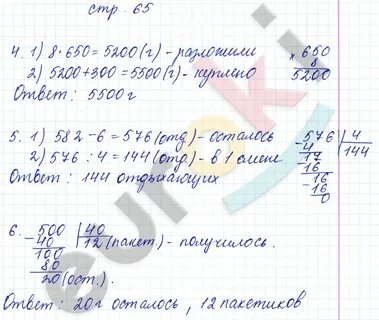 стр. 65
4. 1) 8·650=5200(г)-разложили
× 650
8
5200
2) 5200+300=5500(г)-куплено
Ответ: 5500г
5. 1) 582-6=576(отд)-осталось
576 | 4
-4 144
17
-16
16
-16
0
2) 576:4=144(отд)-в 1 смене
Ответ: 144 отдыхающих
6. -500 | 40
40 12 (пакет.)-получилось.
100
80
20 (ост.).
Ответ: 20г осталось, 12 пакетиков
euroki